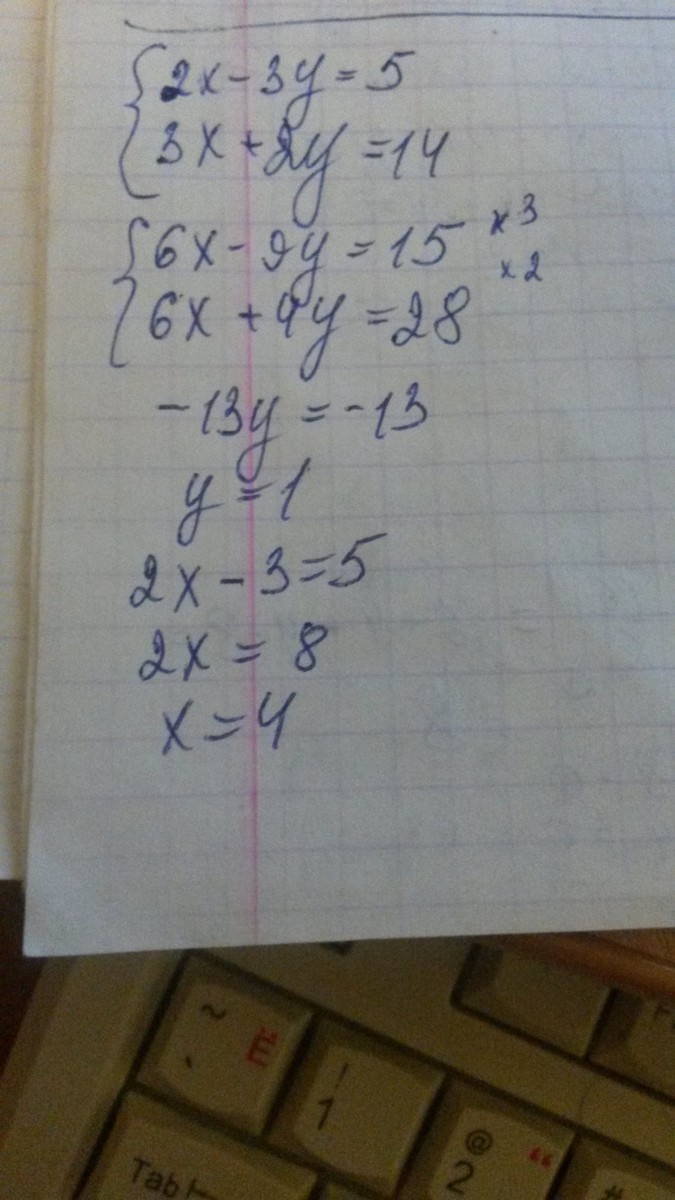 {2x-3y=5
3x+2y=14
{6x-9y=15 x3
6x+4y=28 x2
-13y=-13
y=1
2x-3=5
2x=8
x=4
~ Ё
`
! 1
@ " 2
#
Tab